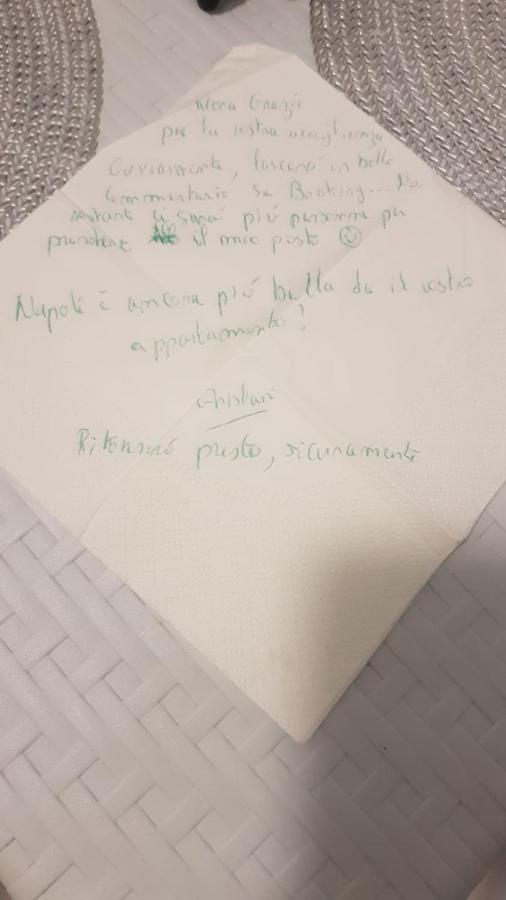 Grazie
per la vostra
Ovviamente, lascerò un bello
commentario su Booking...
più persone per
prendere il mio posto
Napoli è ancora più bella da il vostro
appartamento!
Ritornerò presto, sicuramente